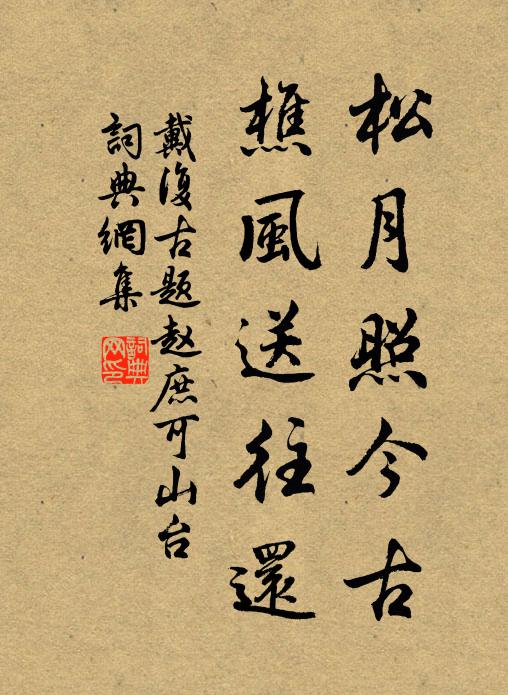 松月照今古
樵風送往還
戴復古題趙庶可山台
詞典網集
詞典
网印